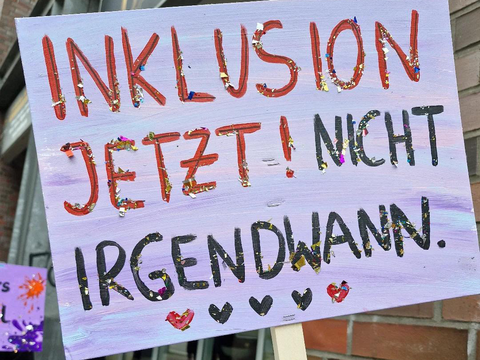 INKLUSION
JETZT! NICHT
IRGENDWANN.